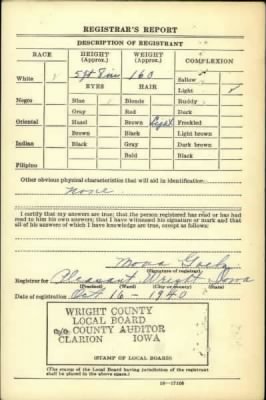 REGISTRAR'S REPORT
DESCRIPTION OF REGISTRANT
RACE HEIGHT (Approx.) WEIGHT (Approx.) COMPLEXION
White ✓ 5 ft 8 in 160 Sallow
Light ✓
EYES HAIR
Negro Blue Blonde Ruddy
Gray Red Dark
Oriental Hazel Brown Freckled
Brown Black Light brown
Indian Black Gray Dark brown
Bald Black
Filipino
Other obvious physical characteristics that will aid in identification
none
I certify that my answers are true; that the person registered has read or has had
read to him his own answers; that I have witnessed his signature or mark and that
all of his answers of which I have knowledge are true, except as follows:
Mona
(Signature of registrar)
Registrar for Pleasant Wright Iowa
(Precinct) (Ward) (City or county) (State)
Date of registration Oct 16 - 1940
WRIGHT COUNTY
LOCAL BOARD
c/o COUNTY AUDITOR
CLARION IOWA
(STAMP OF LOCAL BOARD)
(The stamp of the Local Board having jurisdiction of the registrant
shall be placed in the above space.)
16—17105